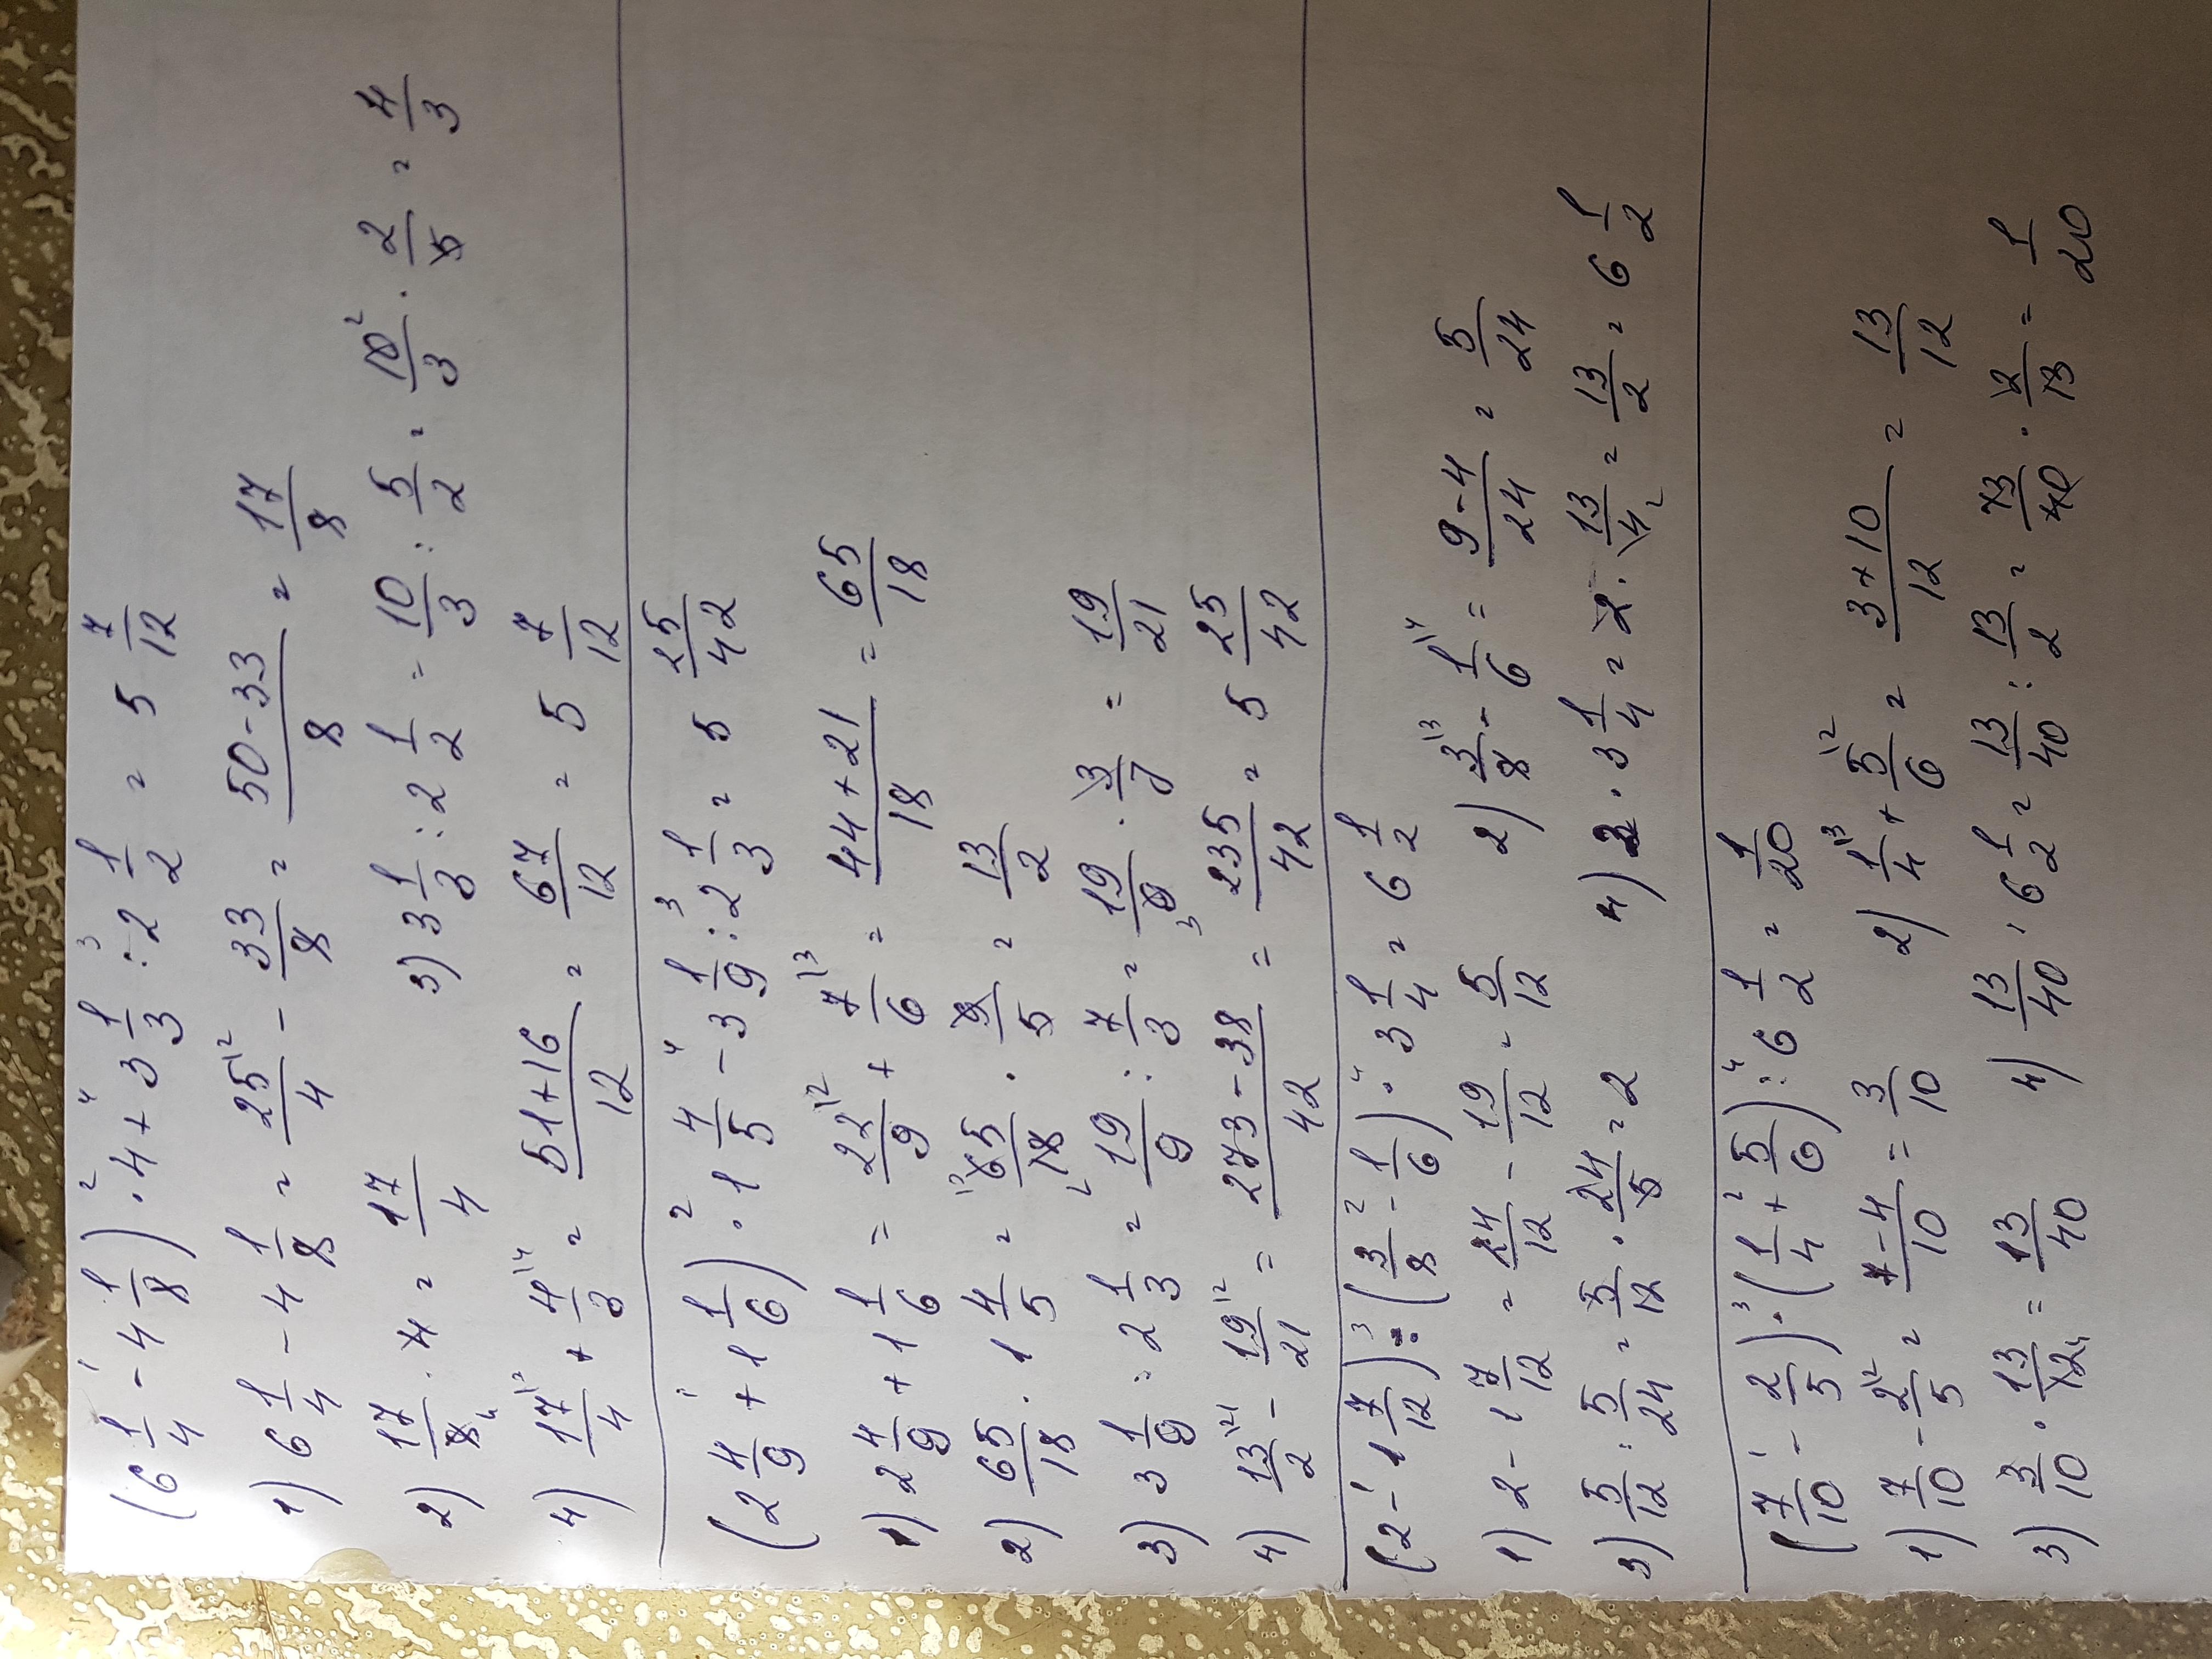 (6 1/4 - 4 1/8) · 4 + 3 1/3 : 2 1/2 = 5 7/12
1) 6 1/4 - 4 1/8 = 25/4 - 33/8 = (50-33)/8 = 17/8
2) 17/8 · 4 = 17/4 3) 3 1/3 : 2 1/2 = 10/3 : 5/2 = 10/3 · 2/5 = 4/3
4) 17/4 + 4/3 = (51+16)/12 = 67/12 = 5 7/12
(2 4/9 + 1 1/6) · 1 4/5 - 3 1/9 : 2 1/3 = 5 25/42
1) 2 4/9 + 1 1/6 = 22/9 + 7/6 = (44+21)/18 = 65/18
2) 65/18 · 1 4/5 = 65/18 · 9/5 = 13/2
3) 3 1/9 : 2 1/3 = 19/9 : 7/3 = 19/9 · 3/7 = 19/21
4) 13/2 - 19/21 = (273-38)/42 = 235/42 = 5 25/42
(2 - 1 7/12) : (3/8 - 1/6) · 3 1/4 = 6 1/2
1) 2 - 1 7/12 = 24/12 - 19/12 = 5/12 2) 3/8 - 1/6 = (9-4)/24 = 5/24
3) 5/12 : 5/24 = 5/12 · 24/5 = 2 4) 2 · 3 1/4 = 2 · 13/4 = 13/2 = 6 1/2
(7/10 - 2/5) · (1/4 + 5/6) : 6 1/2 = 1/20
1) 7/10 - 2/5 = (7-4)/10 = 3/10 2) 1/4 + 5/6 = (3+10)/12 = 13/12
3) 3/10 · 13/12 = 13/40 4) 13/40 : 6 1/2 = 13/40 : 13/2 = 13/40 · 2/13 = 1/20